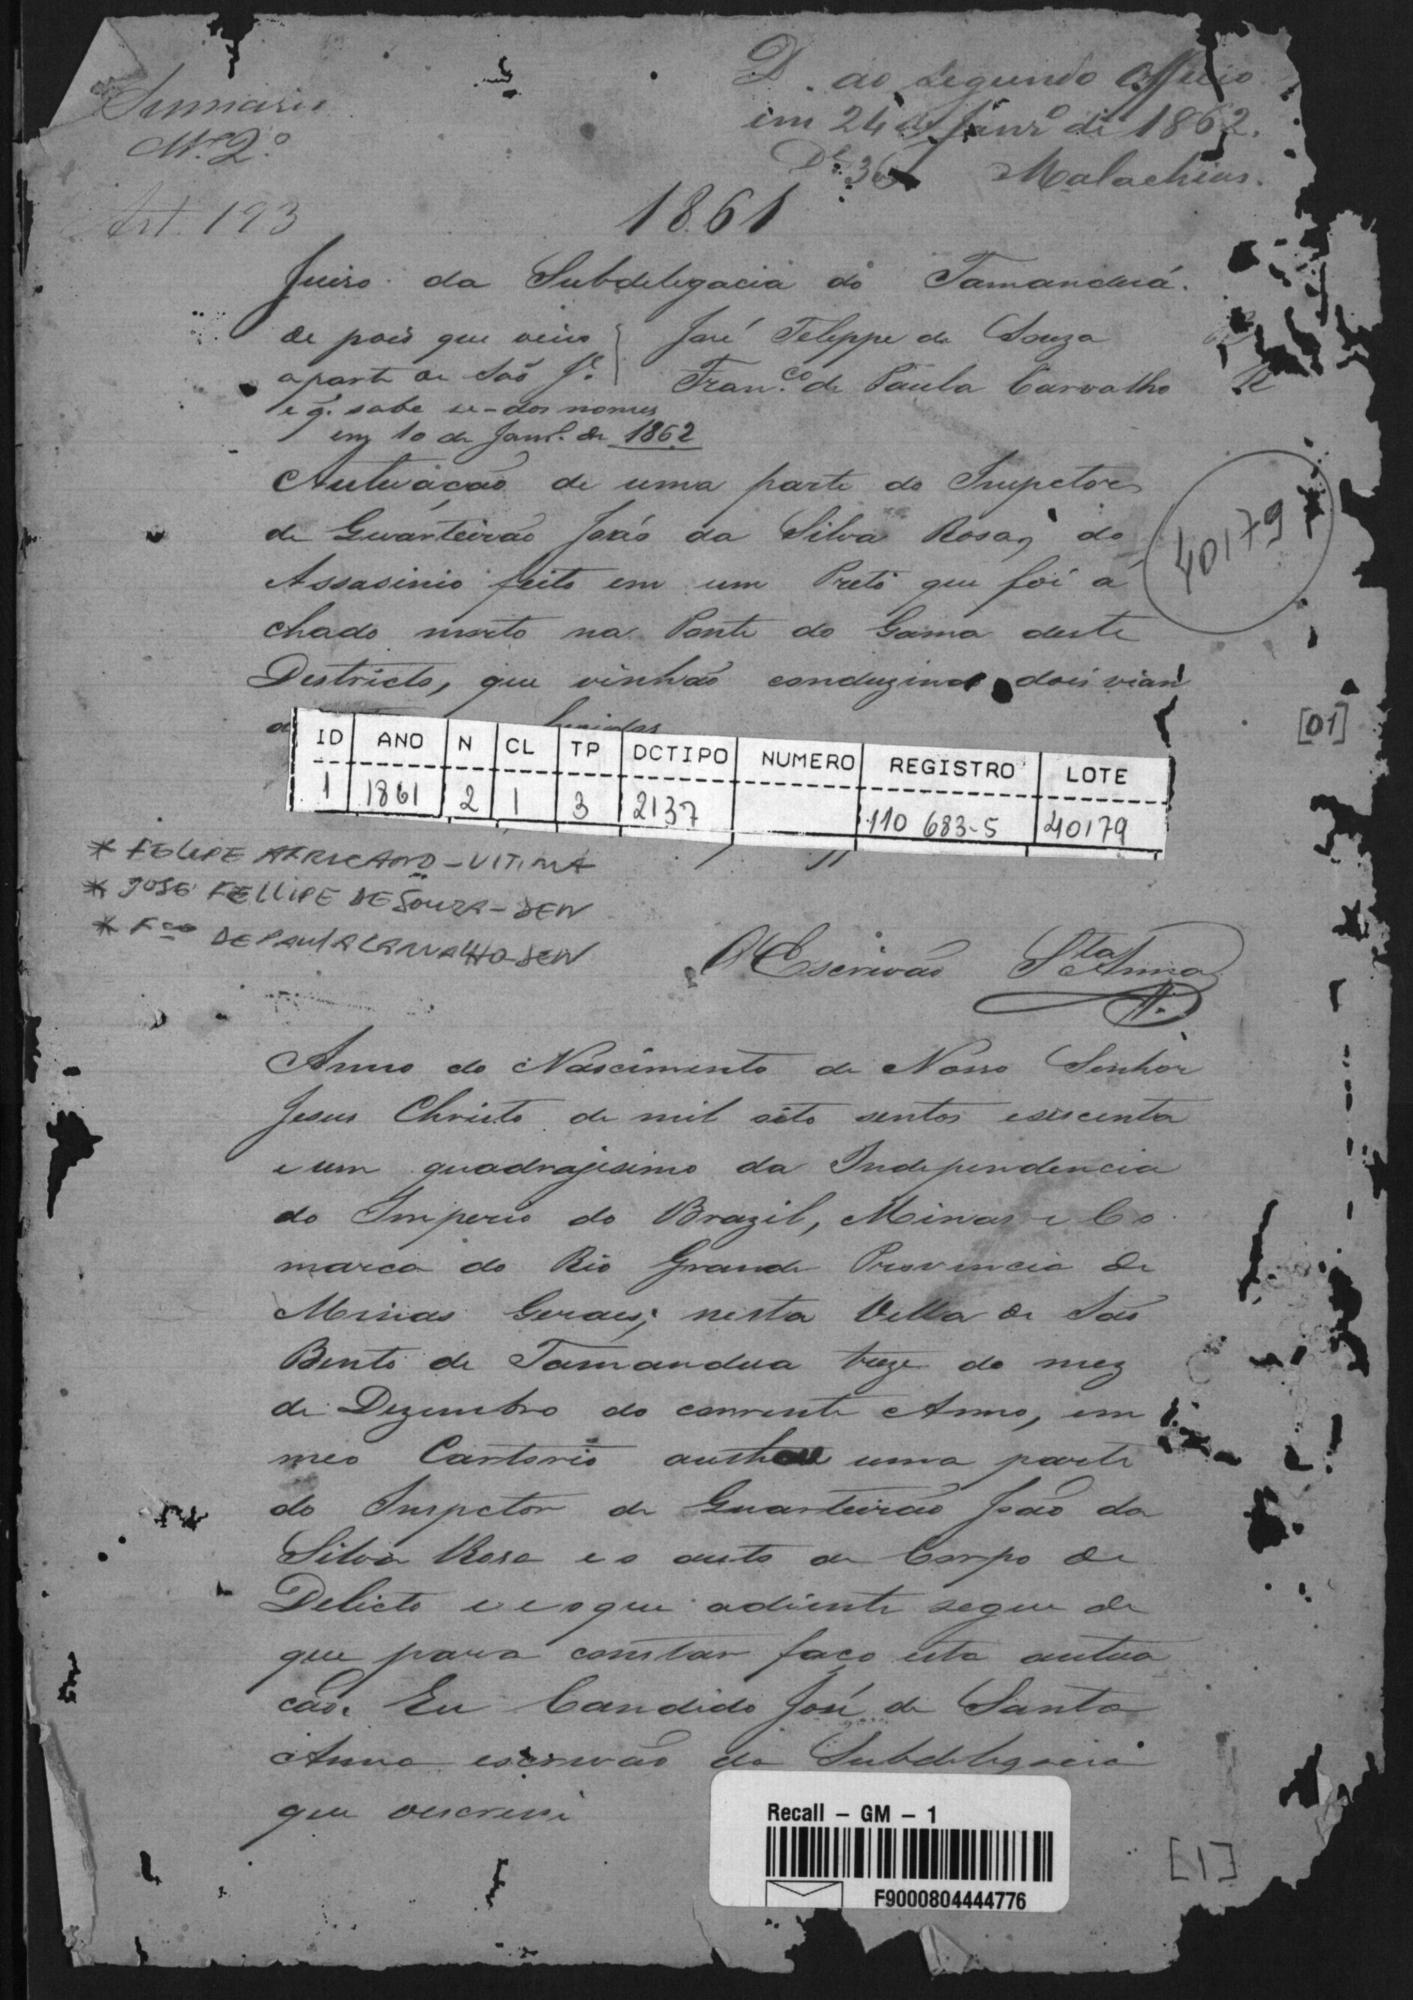 Summario
Nº 2º
Art. 193
D. ao segundo Officio
em 24 de Janrº de 1862.
Malachias.
1861
Juiso da Subdelegacia do Tamanduá.
de pois que veiu
a parte de São Jº
e q. sabe se-dos nomes
em 10 de Janrº de 1862
José Feleppe de Souza
Franco. de Paula Carvalho R
Autuacão de uma parte do Inspetor
de Guarteirão João da Silva Rosa, do
Assasinio feito em um Preto que foi a
chado morto na Ponte do Gama deste
Destricto, que vinhão conduzindo dois vian
40179
[01]
ID ANO N CL TP DCTIPO NUMERO REGISTRO LOTE
1 1861 2 1 3 2137 110 683-5 40179
* FELIPE AFRICANO - VITIMA
* JOSE FELLIPE DE SOUZA - DEN
* Fco DE PAULA CARVALHO - DEN
O Escrivão Sta Anna
Anno do Nascimento de Nosso Senhor
Jesus Christo de mil oito sentos esescenta
e um quadrajesimo da Independencia
do Imperio do Brazil, Minas e Co
marca do Rio Grande Provincia de
Minas Geraes; nesta Villa de São
Bento de Tamandua treze do mez
de Dezembro do corrente Anno, em
meo Cartorio authoei uma parte
do Inspetor de Guarteirão João da
Silva Rosa e o auto de Corpo de
Delicto e o que adiente segue de
que para constar faço esta autua
cão. Eu Candido José de Santa
Anna escrivão da Subdelegacia
que oescrevi
[1]
Recall - GM - 1
F9000804444776